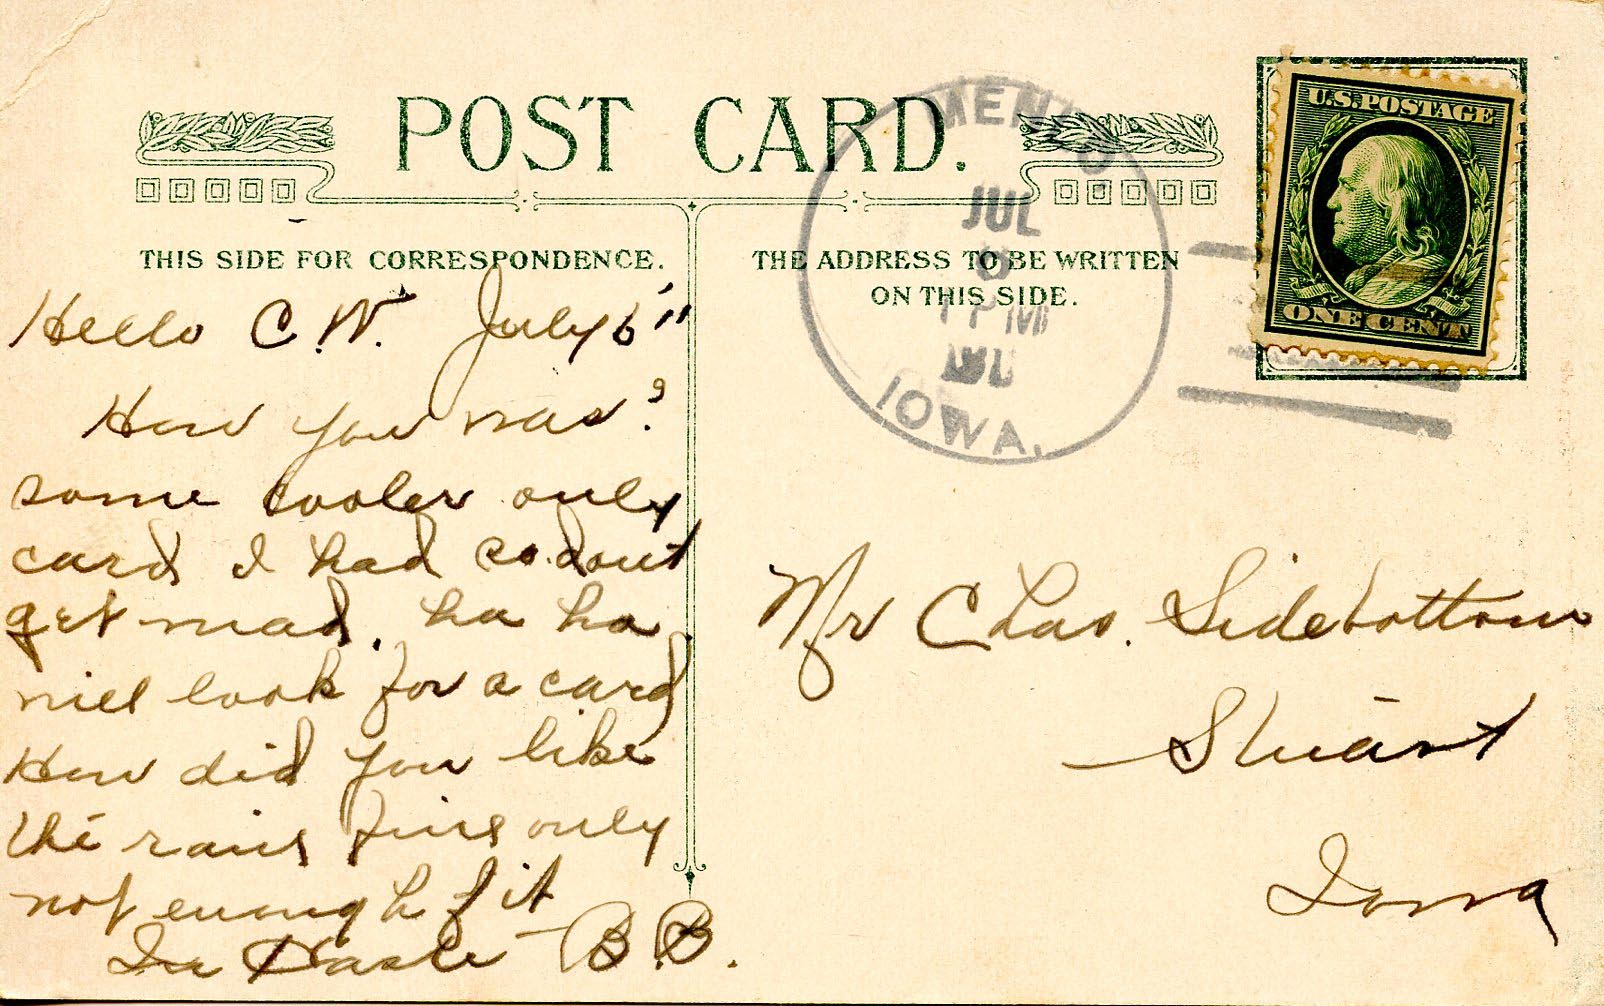 POST CARD.
THIS SIDE FOR CORRESPONDENCE.
THE ADDRESS TO BE WRITTEN
ON THIS SIDE.
U.S. POSTAGE
ONE CENT
MENLO
JUL
PM
IOWA.
Hello C.W. July 6"
How you was?
some cooler only
card I had so dont
get mad. ha ha
will look for a card
How did you like
the rain fine only
not enough of it
In Haste - B.B.
Mr Chas. Sidebottom
Stuart
Iowa